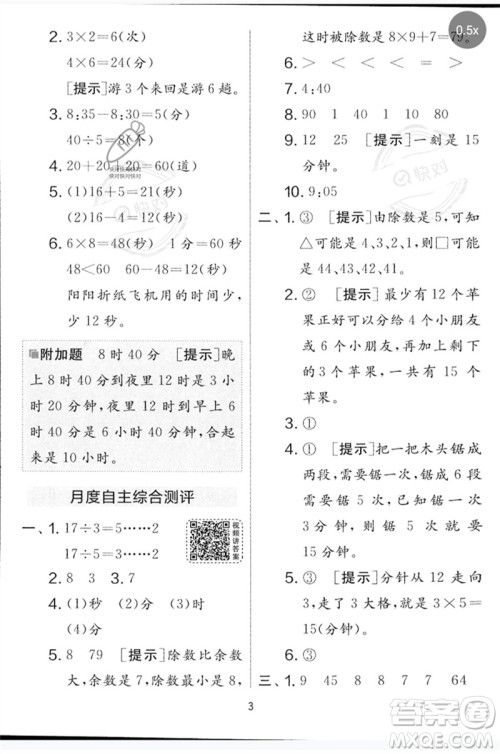 2. 3×2=6(次)
4×6=24(分)
[提示]游3个来回是游6趟。
3. 8:35-8:30=5(分)
40÷5=8(个)
4. 20+20+20=60(道)
5. (1)16+5=21(秒)
(2)16-4=12(秒)
6. 6×8=48(秒) 1分=60秒
48<60 60-48=12(秒)
阳阳折纸飞机用的时间少,
少12秒。
附加题 8时40分 [提示]晚
上8时40分到夜里12时是3小
时20分钟,夜里12时到早上6
时40分是6小时40分钟,合起
来是10小时。
月度自主综合测评
一、1. 17÷3=5……2
17÷5=3……2
视频讲答案
2. 8 3 3. 7
4. (1)秒 (2)分
(3)时 (4)分
5. 8 79 [提示]除数比余数
大,余数是7,除数最小是8。
0.5x
这时被除数是8×9+7=79。
6. > < < < =
7. 4:40
8. 90 1 40 1 10 80
9. 12 25 [提示]一刻是15
分钟。
10. 9:05
二、1. ③ [提示]由除数是5,可知
△可能是4、3、2、1,则□可能
是44、43、42、41。
2. ③ [提示]最少有12个苹
果正好可以平均分给4个小
朋友或6个小朋友,再加上剩
下的3个苹果,一共有15个
苹果。
3. ①
4. ① [提示]把一把木头锯成
两段,需要锯1次;锯成三段,
需要锯2次;锯成四段,需要
锯3次。
5. ③ [提示]分针从12走向
3,走了3大格,就是3×5=
15(分钟)。
三、1. 9 8 4 7 7 64
3